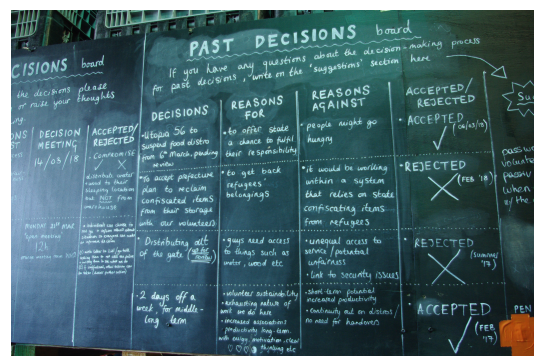 CISIONS board
the decisions please
or raise your thoughts
DECISION
MEETING
14/03/18
ACCEPTED/
REJECTED
COMPROMISE
X
distribute water
sleeping location
but NOT from
warehouse
PAST DECISIONS board
If you have any questions about the decision-making process
for past decisions, write on the 'suggestions' section here
DECISIONS
REASONS
FOR
REASONS
AGAINST
ACCEPTED/
REJECTED
• Utopia 56 to
suspend food distro
from 6th March, pending
review
• to offer state
a chance to fulfil
their responsibility
• people might go
hungry
• ACCEPTED
✓ (06/03/18)
• to accept prefecture
plan to reclaim
confiscated items
from their storage
with our volunteers
• to get back
refugees
belongings
• it would be working
within a system
that relies on state
confiscating items
from refugees
• REJECTED
X (FEB '18)
• Distributing out
of the gate
• guys need access
to things such as
water, wood etc
• unequal access to
service/potential
unfairness
• link to security issues
• REJECTED
X (summer '17)
• 2 days off a
week, for middle-
long term
• volunteer sustainability
• exhausting nature of
work we do here
• increased associations
productivity long-term
with energy, motivation, clear
thinking etc
• short-term potential
increased productivity
• continuity out on distros/
no need for handovers
• ACCEPTED
✓ (FEB '17)
PEN